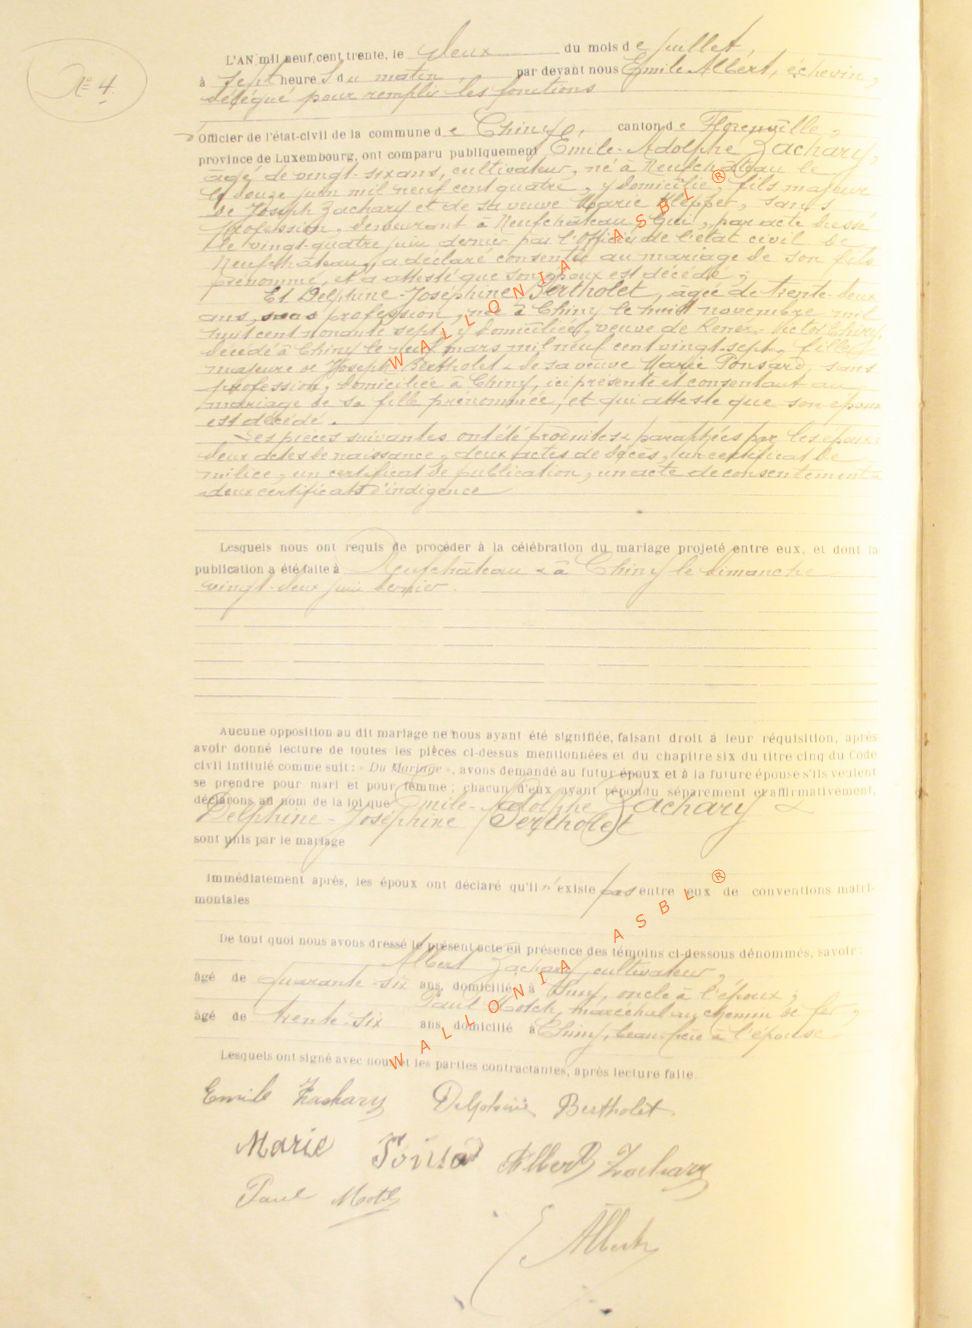 N° 4.
L'AN mil neuf cent trente, le deux du mois de juillet,
à sept heures du matin, par devant nous Emile Albert, échevin,
délégué pour remplir les fonctions
Officier de l'état-civil de la commune de Chiny, canton de Florenville,
province de Luxembourg, ont comparu publiquement Emile-Adolphe Zachary,
âgé de vingt-six ans, cultivateur, né à Neufchâteau le
le douze juin mil neuf cent quatre, y domicilié, fils majeur
de Joseph Zachary et de sa veuve Marie Klepper, sans
profession, demeurant à Neufchâteau, qui, par acte dressé
le vingt-quatre juin dernier par l'Officier de l'état civil de
Neufchâteau, a déclaré consentir au mariage de son fils
prénommé, et a attesté que son époux est décédé;
Et Delphine-Joséphine Bertholet, âgée de trente-deux
ans, sans profession, née à Chiny le huit novembre mil
huit cent nonante sept, y domiciliée, veuve de René-Victor
décédé à Chiny le neuf mars mil neuf cent vingt-sept, fille
majeure de Joseph Bertholet & de sa veuve Marie Ponsard, sans
profession, domiciliée à Chiny, ici présente et consentant au
mariage de sa fille prénommée, et qui atteste que son époux
est décédé.
Les pièces suivantes ont été produites & paraphées par les époux:
deux actes de naissance, deux actes de décès, un certificat de
milice, un certificat de publication, un acte de consentement &
deux certificats d'indigence
Lesquels nous ont requis de procéder à la célébration du mariage projeté entre eux, et dont la
publication a été faite à Neufchâteau & à Chiny le dimanche
vingt-deux juin dernier.
Aucune opposition au dit mariage ne nous ayant été signifiée, faisant droit à leur réquisition, après
avoir donné lecture de toutes les pièces ci-dessus mentionnées et du chapitre six du titre cinq du Code
civil intitulé comme suit: « Du Mariage », avons demandé au futur époux et à la future épouse s'ils veulent
se prendre pour mari et pour femme; chacun d'eux ayant répondu séparement et affirmativement,
déclarons au nom de la loi que Emile-Adolphe Zachary &
Delphine-Joséphine Bertholet
sont unis par le mariage
Immédiatement après, les époux ont déclaré qu'il n'existe pas entre eux de conventions matri-
moniales
De tout quoi nous avons dressé le présent acte en présence des témoins ci-dessous dénommés, savoir:
Albert Zachary, cultivateur,
âgé de quarante-six ans, domicilié à Chiny, oncle à l'époux,
Paul maréchal au chemin de fer,
âgé de trente-six ans domicilié à Chiny, beau-frère à l'épouse
Lesquels ont signé avec nous et les parties contractantes, après lecture faite.
Emile Zachary Delphine Bertholet
Marie Albert Zachary
Paul
E. Albert
WALLONIA ASBL ®
WALLONIA ASBL ®